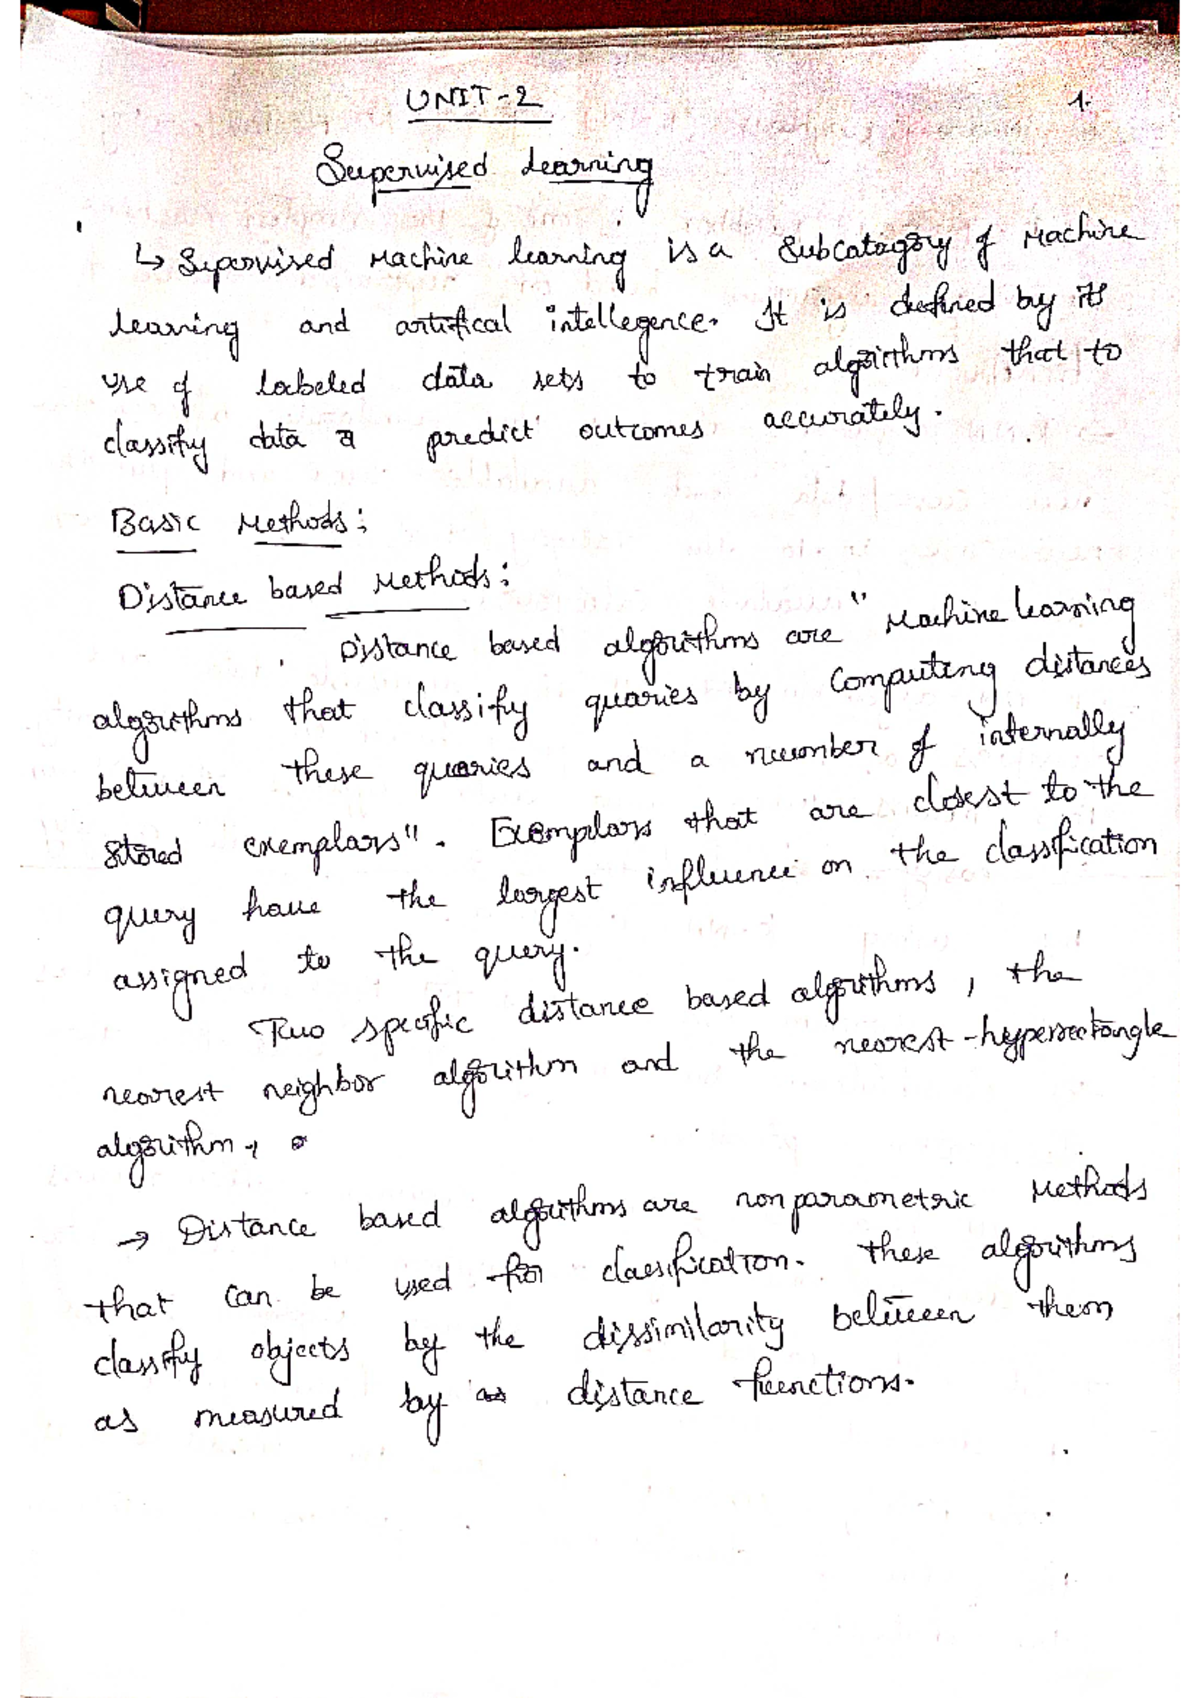 UNIT-2
1.
Supervised Learning
↳ Supervised Machine learning is a Subcatagory of Machine
learning and artifical intellegence. It is defined by its
use of labeled data sets to train algorithms that to
classify data a predict outcomes accurately.
Basic Methods:
Distance based Methods:
Distance based algorithms are "Machine learning
algorithms that classify quaries by Computing distances
between these quaries and a number of internally
stored exemplars". Exemplars that are closest to the
query have the largest influence on the classification
assigned to the query.
Two specific distance based algorithms, the
nearest neighbor algorithm and the nearest-hyperrectangle
algorithm.,
→ Distance based algorithms are nonparametric Methods
that can be used for classification. These algorithms
classify objects by the dissimilarity between them
as measured by distance functions.